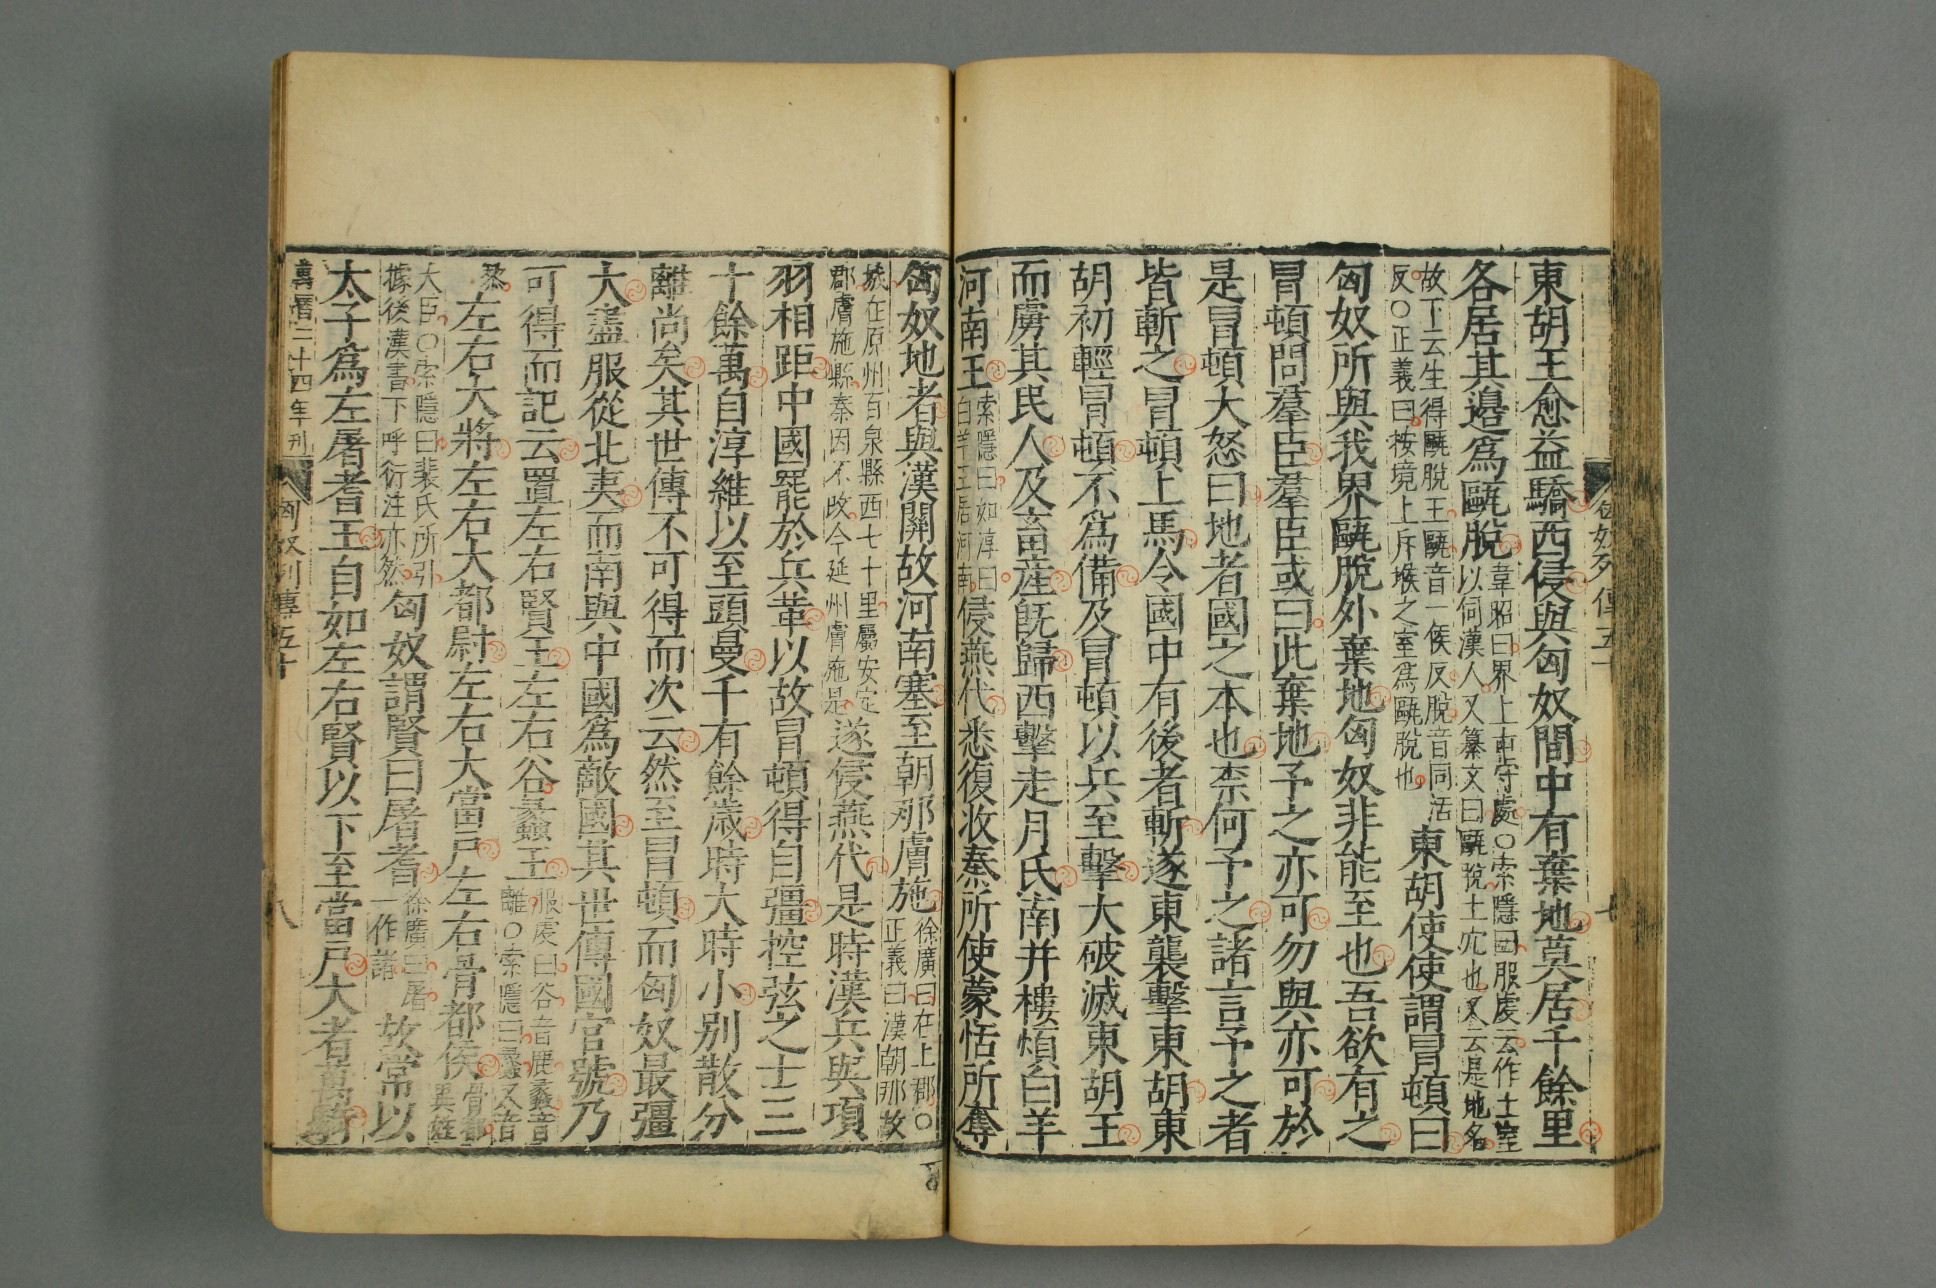 匈奴列傳五十
七
東胡王愈益驕西侵與匈奴間中有棄地莫居千餘里
各居其邊爲甌脫韋昭曰界上屯守處○索隱曰服虔云作土室以伺漢人又纂文曰甌脫土穴也又云是地名
故下云生得甌脫王甌音一侯反脫音同活反○正義曰按境上斥堠之室爲甌脫也東胡使使謂冒頓曰
匈奴所與我界甌脫外棄地匈奴非能至也吾欲有之
冒頓問羣臣羣臣或曰此棄地予之亦可勿與亦可於
是冒頓大怒曰地者國之本也柰何予之諸言予之者
皆斬之冒頓上馬令國中有後者斬遂東襲擊東胡東
胡初輕冒頓不爲備及冒頓以兵至擊大破滅東胡王
而虜其民人及畜產旣歸西擊走月氏南并樓煩白羊
河南王索隱曰如淳曰白羊王居河南侵燕代悉復收秦所使蒙恬所奪
匈奴地者與漢關故河南塞至朝那膚施徐廣曰在上郡○正義曰漢朝那故
城在原州百泉縣西七十里屬安定郡膚施縣秦因不改今延州膚施是遂侵燕代是時漢兵與項
羽相距中國罷於兵革以故冒頓得自彊控弦之士三
十餘萬自淳維以至頭曼千有餘歲時大時小別散分
離尚矣其世傳不可得而次云然至冒頓而匈奴最彊
大盡服從北夷而南與中國爲敵國其世傳國官號乃
可得而記云置左右賢王左右谷蠡王服虔曰谷音鹿蠡音離○索隱曰蠡又音
黎左右大將左右大都尉左右大當戶左右骨都侯骨都異姓
大臣○索隱曰裴氏所引據後漢書下呼衍注亦然匈奴謂賢曰屠耆徐廣曰屠一作諸故常以
太子爲左屠耆王自如左右賢以下至當戶大者萬騎
萬曆二十四年刊
匈奴列傳五十
八